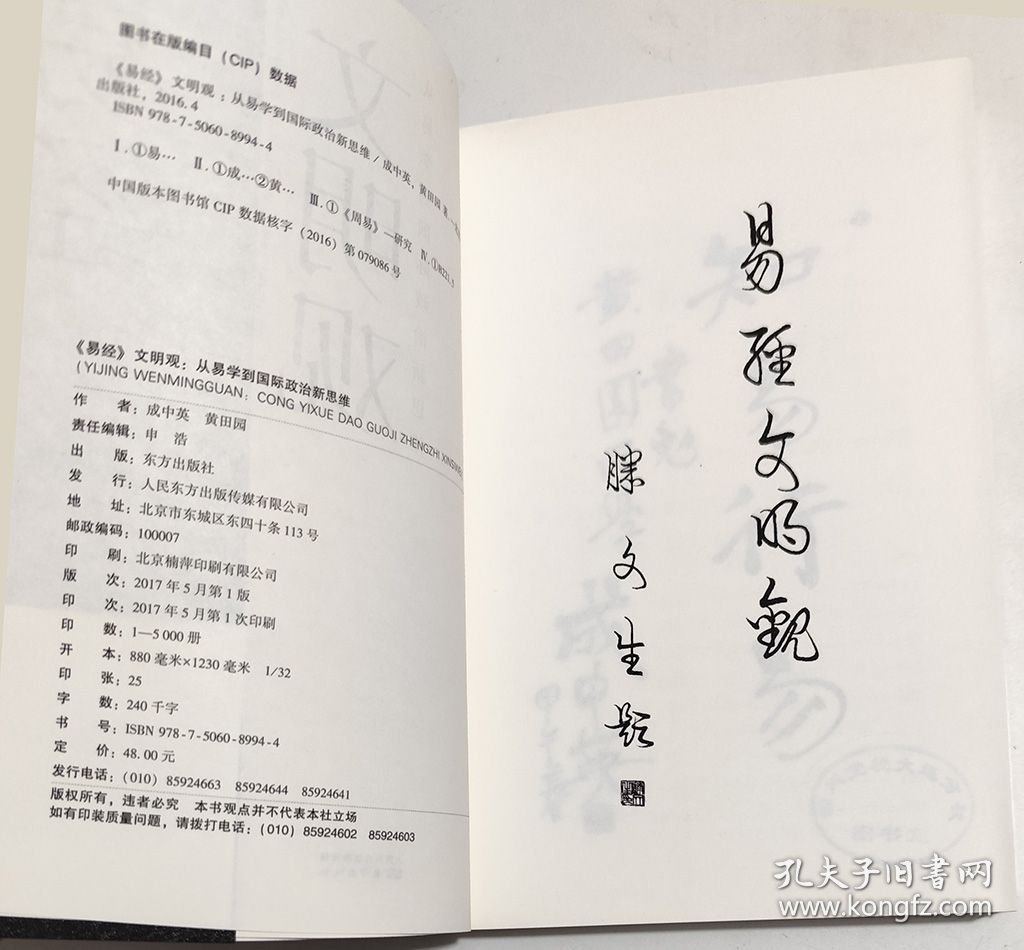 图书在版编目（CIP）数据
《易经》文明观：从易学到国际政治新思维 / 成中英，黄田园 著.
出版社，2016.4
ISBN 978-7-5060-8994-4
Ⅰ.①易… Ⅱ.①成…②黄… Ⅲ.①《周易》—研究 Ⅳ.①B221.5
中国版本图书馆 CIP 数据核字（2016）第 079086 号
《易经》文明观：从易学到国际政治新思维
(YIJING WENMINGGUAN: CONG YIXUE DAO GUOJI ZHENGZHI XINSIWEI
作 者：成中英 黄田园
责任编辑：申 浩
出 版：东方出版社
发 行：人民东方出版传媒有限公司
地 址：北京市东城区东四十条 113 号
邮政编码：100007
印 刷：北京楠萍印刷有限公司
版 次：2017 年 5 月第 1 版
印 次：2017 年 5 月第 1 次印刷
印 数：1—5 000 册
开 本：880 毫米×1230 毫米 1/32
印 张：25
字 数：240 千字
书 号：ISBN 978-7-5060-8994-4
定 价：48.00 元
发行电话：（010）85924663 85924644 85924641
版权所有，违者必究 本书观点并不代表本社立场
如有印装质量问题，请拨打电话：（010）85924602 85924603
易經文明觀
滕文生題
孔夫子旧书网
www.kongfz.com